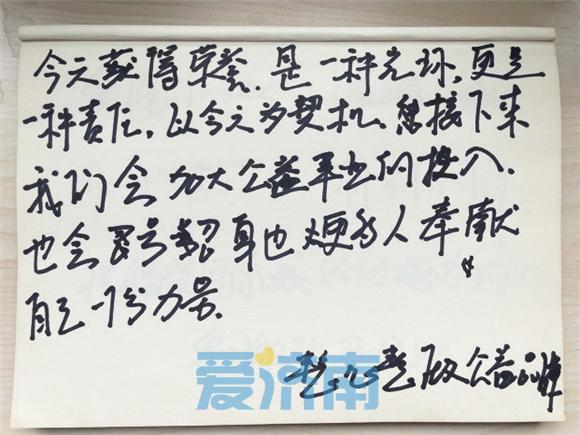 今天获得荣誉,是一种光环,更是
一种责任,以今天为契机,接下来
我们会加大公益事业的投入,
也会号召身边更多人奉献
自己一份力量.
公益
爱济南